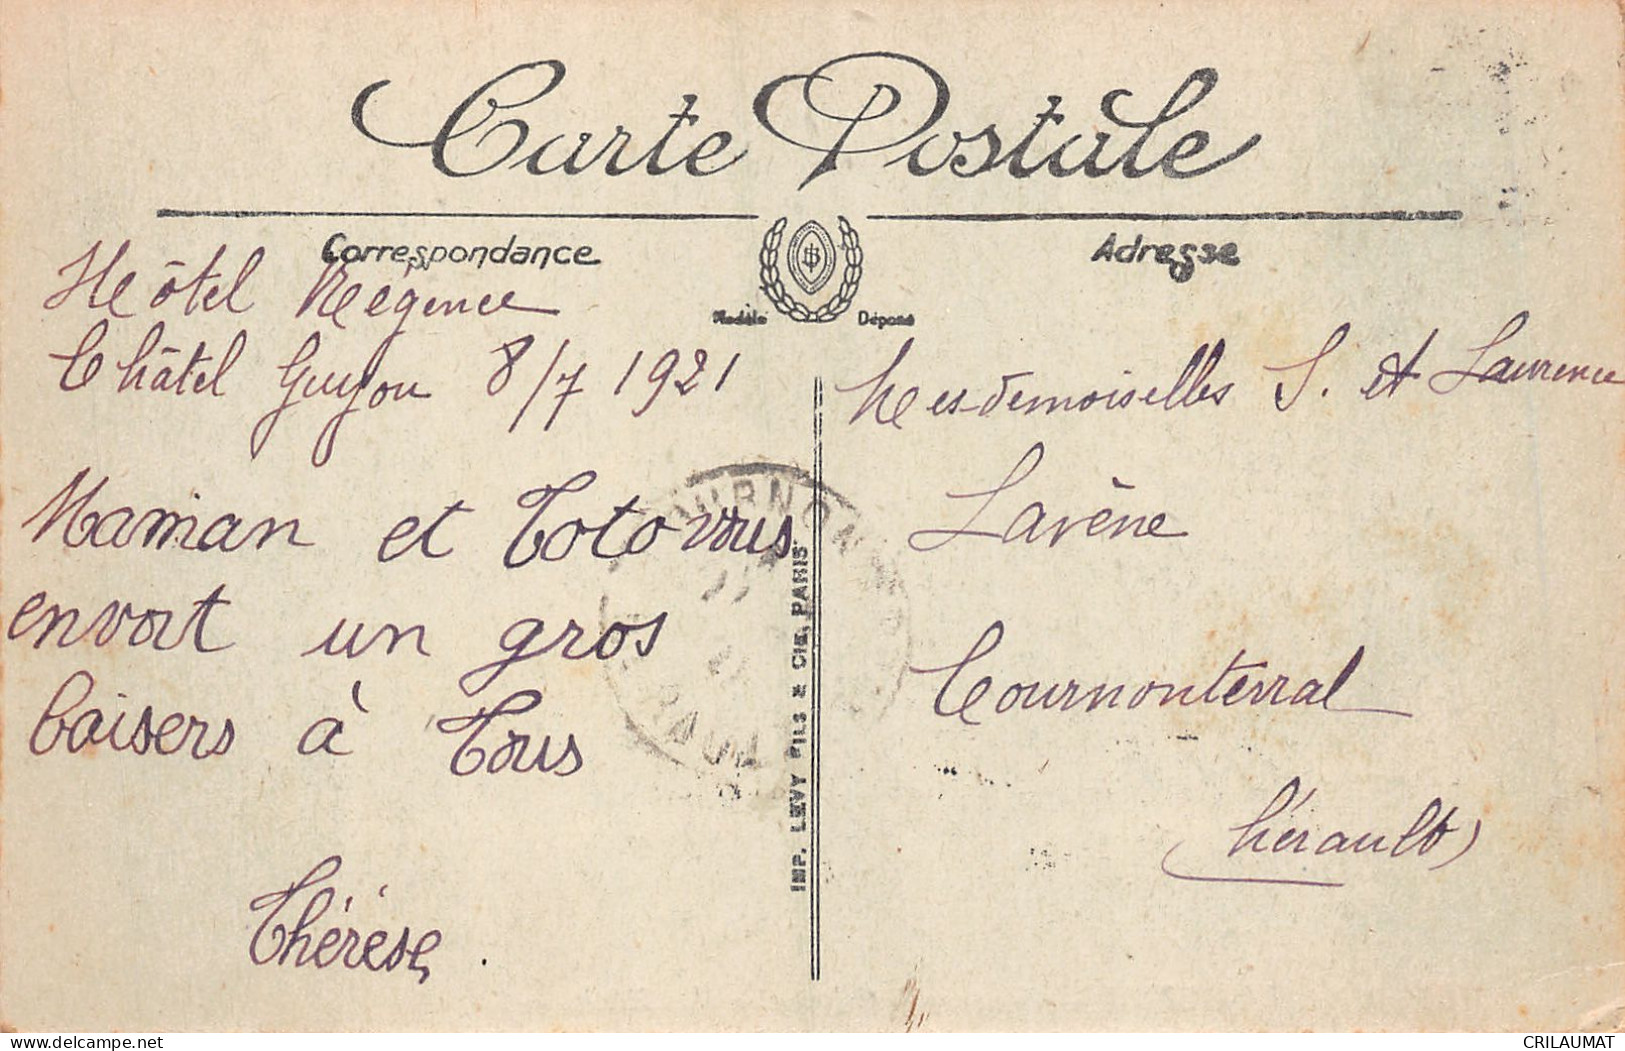 Carte Postale
Correspondance
Adresse
Modèle Déposé
Hôtel Régence
Châtel Guyon 8/7 1921
Maman et Toto vous
envoit un gros
baisers à Tous
Thérèse.
IMP. LEVY FILS & CIE, PARIS
Mesdemoiselles S. et Laurence
Lavène
Cournonterral
(hérault)
CRILAUMAT